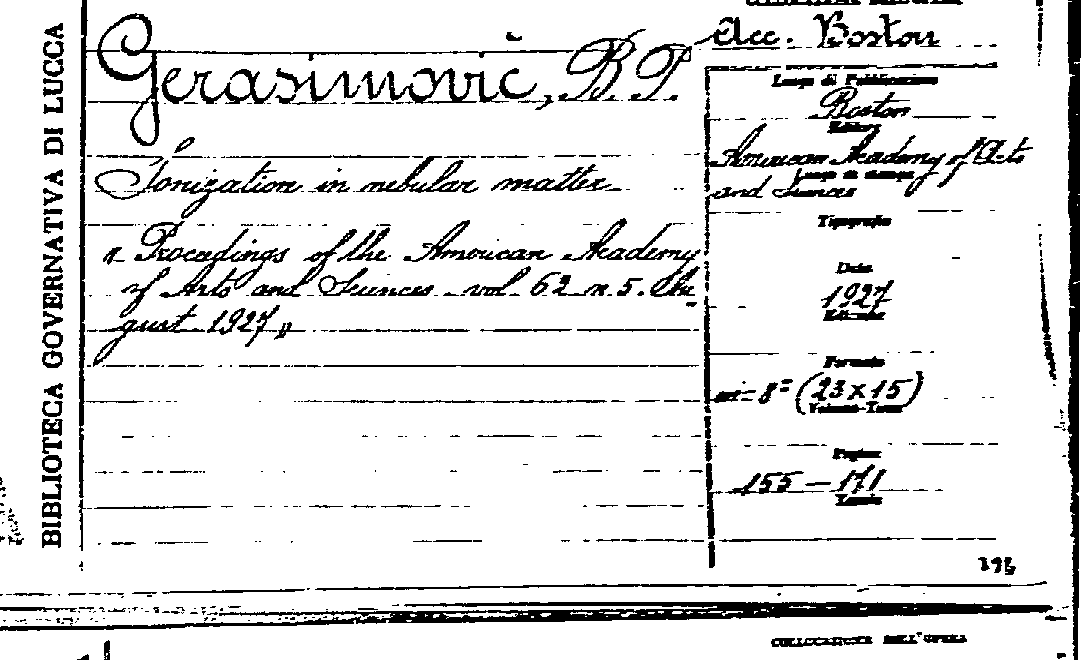 BIBLIOTECA GOVERNATIVA DI LUCCA
Gerasimovič, B. P.
Ionization in nebular matter
"Procedings of the American Academy
of Arts and Sciences vol 62 n. 5. Au-
gust 1927"
Acc. Boston
Luogo di Pubblicazione
Boston
Editore
American Academy of Arts
Luogo di stampa
and Sciences
Tipografia
Data
1927
Edizione
Formato
in-8º (23x15)
Volume-Tomo
Pagine
155-171
395
COLLOCAZIONE DELL'OPERA